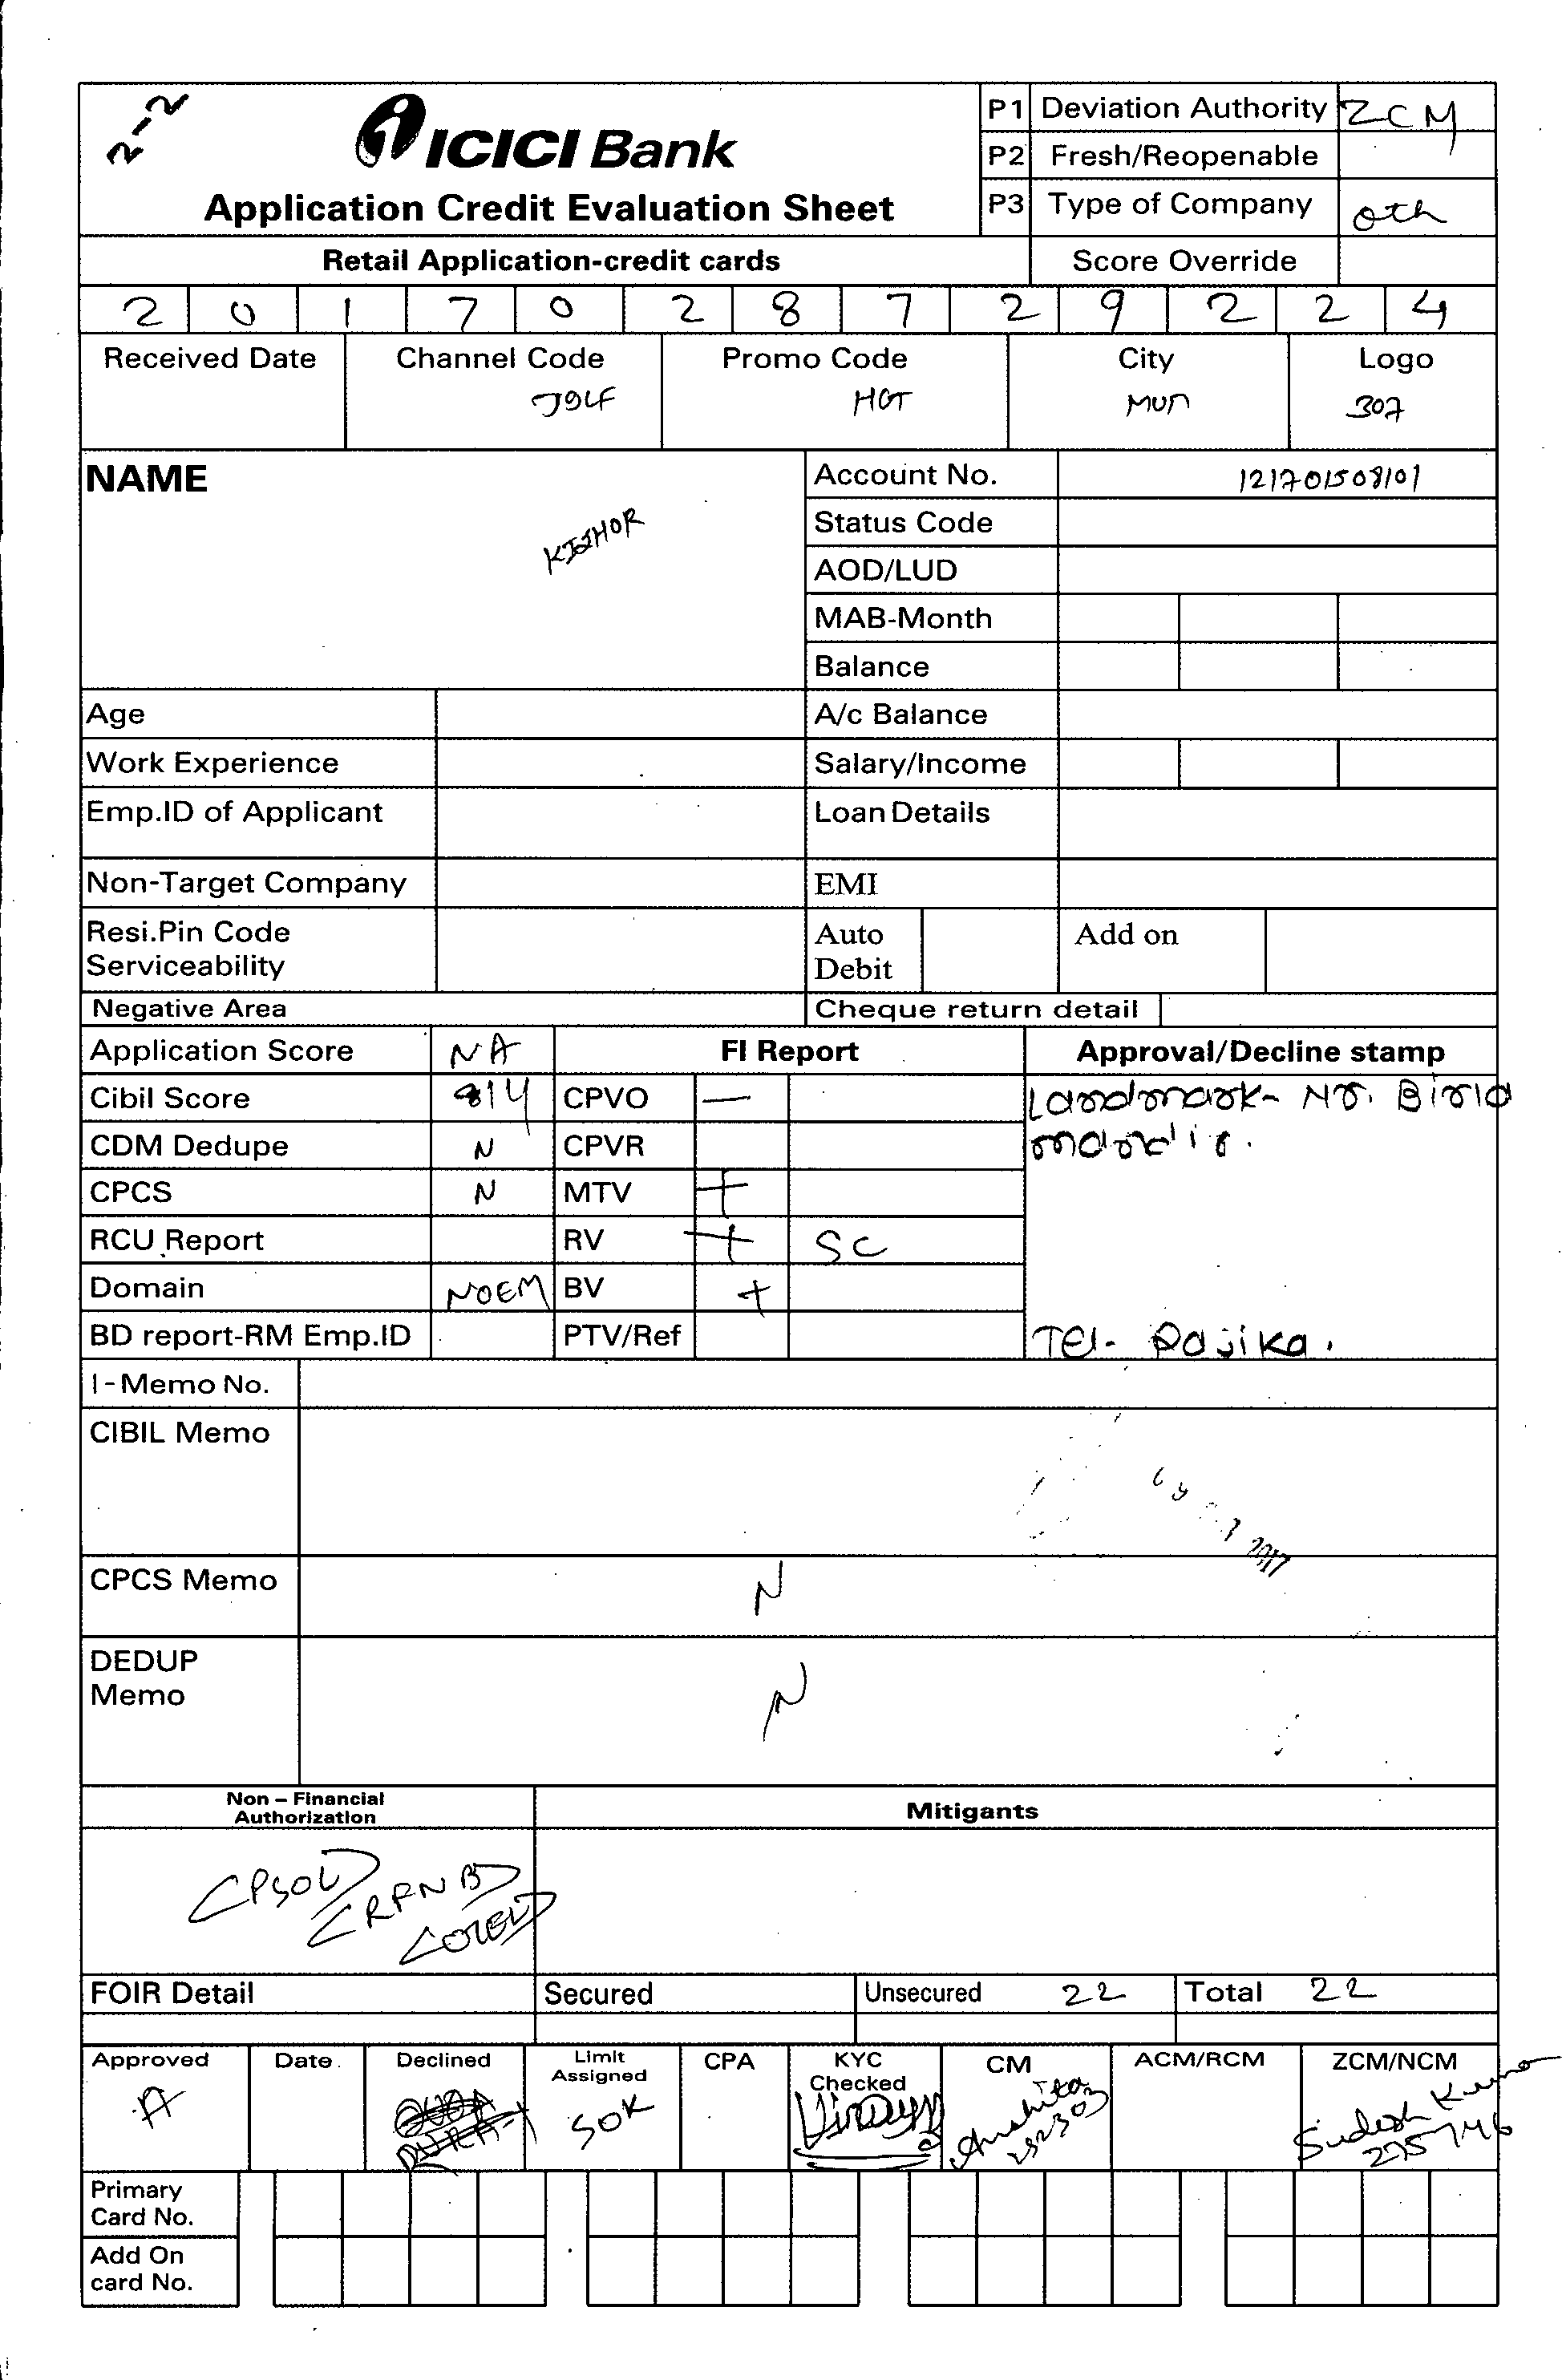 2-2
ICICI Bank
Application Credit Evaluation Sheet
P1 Deviation Authority ZCM
P2 Fresh/Reopenable
P3 Type of Company oth
Retail Application-credit cards Score Override
2 0 1 7 0 2 8 7 2 9 2 2 4
Received Date Channel Code Promo Code City Logo
J9LF HOT MUM 307
NAME KISHOR
Account No. 121701508101
Status Code
AOD/LUD
MAB-Month
Balance
Age A/c Balance
Work Experience Salary/Income
Emp.ID of Applicant Loan Details
Non-Target Company EMI
Resi.Pin Code Serviceability Auto Debit Add on
Negative Area Cheque return detail
Application Score NA FI Report Approval/Decline stamp
Cibil Score 814 CPVO — Landmark- Nr. Birla
CDM Dedupe N CPVR mandir.
CPCS N MTV +
RCU Report RV + SC
Domain NOEM BV +
BD report-RM Emp.ID PTV/Ref Tel- Rajika.
I-Memo No.
CIBIL Memo
2017
CPCS Memo N
DEDUP Memo N
Non – Financial Authorization Mitigants
CPSOL
CRFNB
FOIR Detail Secured Unsecured 22 Total 22
Approved Date Declined Limit Assigned CPA KYC Checked CM ACM/RCM ZCM/NCM
A 50K Anshita Sudesh Kumar
275746
Primary Card No.
Add On card No.